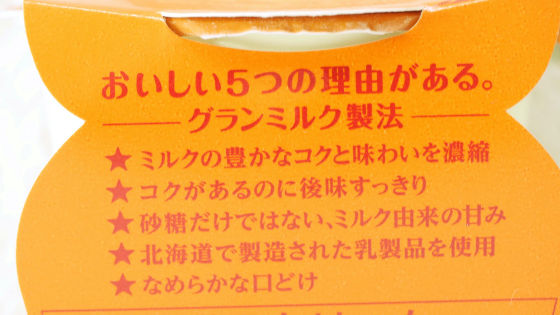 おいしい5つの理由がある。
グランミルク製法
★ミルクの豊かなコクと味わいを濃縮
★コクがあるのに後味すっきり
★砂糖だけではない、ミルク由来の甘み
★北海道で製造された乳製品を使用
★なめらかな口どけ